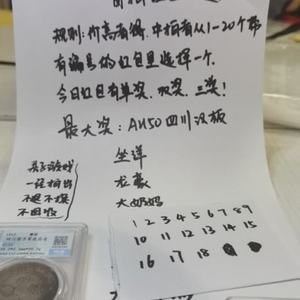 规则:价高者得,中拍者从1-20个带
有编号的红包里选择一个.
今日红包有单奖,双奖,三奖!
最大奖:AU50四川汉板
坐洋
龙毫
大奶妈
亲子游戏
一经拍出
不退不换
不回收
1 2 3 4 5 6 7 8 9
10 11 12 13 14 15
16 17 18